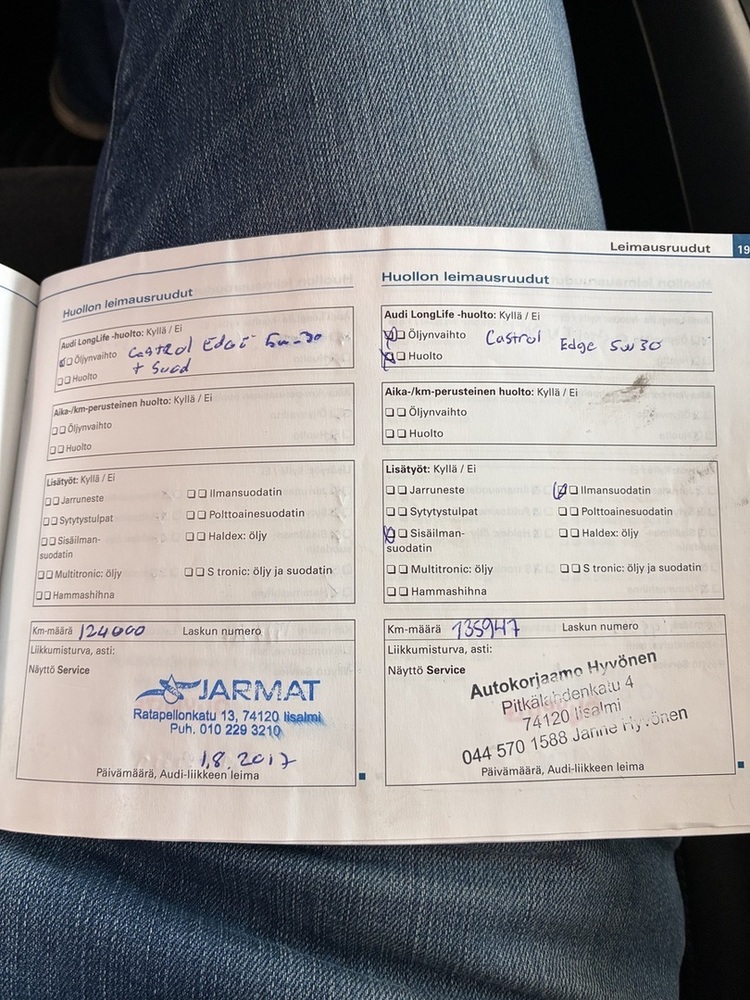 Leimausruudut 19
Huollon leimausruudut
Audi LongLife -huolto: Kyllä / Ei
Öljynvaihto Castrol Edge 5w-30
Huolto + Suod
Aika-/km-perusteinen huolto: Kyllä / Ei
Öljynvaihto
Huolto
Lisätyöt: Kyllä / Ei
Jarruneste Ilmansuodatin
Sytytystulpat Polttoainesuodatin
Sisäilman- Haldex: öljy
suodatin
Multitronic: öljy S tronic: öljy ja suodatin
Hammashihna
Km-määrä 124000 Laskun numero
Liikkumisturva, asti:
Näyttö Service
JARMAT
Ratapellonkatu 13, 74120 Iisalmi
Puh. 010 229 3210
1.8.2017
Päivämäärä, Audi-liikkeen leima
Huollon leimausruudut
Audi LongLife -huolto: Kyllä / Ei
Öljynvaihto Castrol Edge 5w30
Huolto
Aika-/km-perusteinen huolto: Kyllä / Ei
Öljynvaihto
Huolto
Lisätyöt: Kyllä / Ei
Jarruneste Ilmansuodatin
Sytytystulpat Polttoainesuodatin
Sisäilman- Haldex: öljy
suodatin
Multitronic: öljy S tronic: öljy ja suodatin
Hammashihna
Km-määrä 135947 Laskun numero
Liikkumisturva, asti:
Näyttö Service
Autokorjaamo Hyvönen
Pitkälahdenkatu 4
74120 Iisalmi
044 570 1588 Janne Hyvönen
Päivämäärä, Audi-liikkeen leima